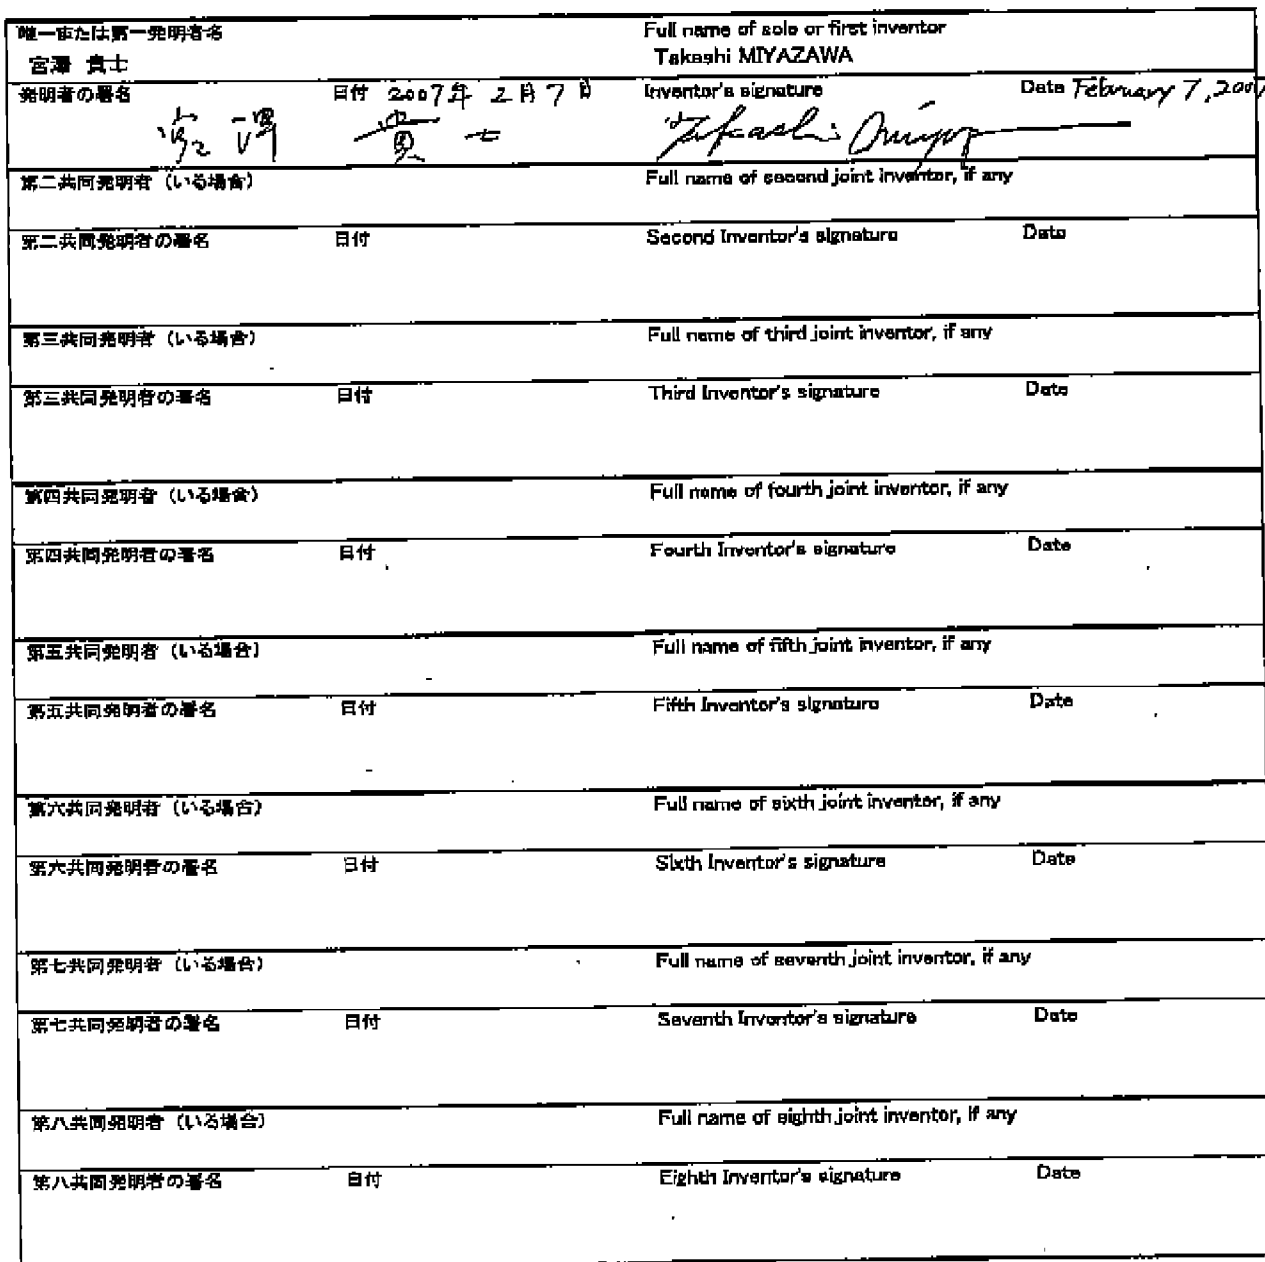 唯一または第一発明者名 Full name of sole or first inventor
宮澤 貴士 Takashi MIYAZAWA
発明者の署名 日付 2007年 2月 7日 Inventor's signature Date February 7, 2007
宮澤 貴士 Takashi Miyaz
第二共同発明者 (いる場合) Full name of second joint inventor, if any
第二共同発明者の署名 日付 Second Inventor's signature Date
第三共同発明者 (いる場合) Full name of third joint inventor, if any
第三共同発明者の署名 日付 Third Inventor's signature Date
第四共同発明者 (いる場合) Full name of fourth joint inventor, if any
第四共同発明者の署名 日付 Fourth Inventor's signature Date
第五共同発明者 (いる場合) Full name of fifth joint inventor, if any
第五共同発明者の署名 日付 Fifth Inventor's signature Date
第六共同発明者 (いる場合) Full name of sixth joint inventor, if any
第六共同発明者の署名 日付 Sixth Inventor's signature Date
第七共同発明者 (いる場合) Full name of seventh joint inventor, if any
第七共同発明者の署名 日付 Seventh Inventor's signature Date
第八共同発明者 (いる場合) Full name of eighth joint inventor, if any
第八共同発明者の署名 日付 Eighth Inventor's signature Date